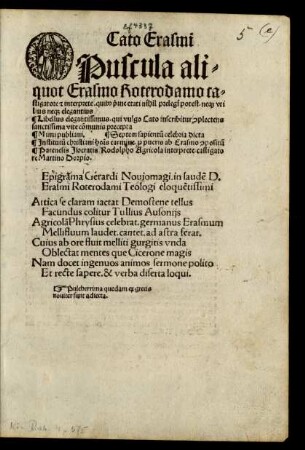 Cato Erasmi
Opuscula ali-
quot Erasmo Roterodamo ca-
stigatore & interprete, quibus primae aetati nihil praelegi potest, neque uti
lius neque elegantius.
¶Libellus elegantissimus, qui vulgo Cato inscribitur, complectens
sanctissima vitae communis praecepta
¶Mimi publiani. ¶Septem sapientum celebria dicta
¶Institutum christiani hominis carmine pro pueris ab Erasmo compositum
¶Parenesis Isocratis Rodolpho Agricola interprete castigato
re Martino Dorpio.
Epigrāma Gerardi Nouiomagi. in laudē D.
Erasmi Roterodami Teologi eloquētissimi
Attica se claram iactat Demostene tellus
Facundus colitur Tullius Ausonijs
Agricolā Phrysius celebrat. germanus Erasmum
Mellifluum laudet. cantet. ad astra ferat.
Cuius ab ore fluit melliti gurgitis vnda
Oblectat mentes que Cicerone magis
Nam docet ingenuos animos sermone polito
Et recte sapere. & verba diserta loqui.
☞ Pulcherrima quedam ex grecis
nouiter sunt adiecta.